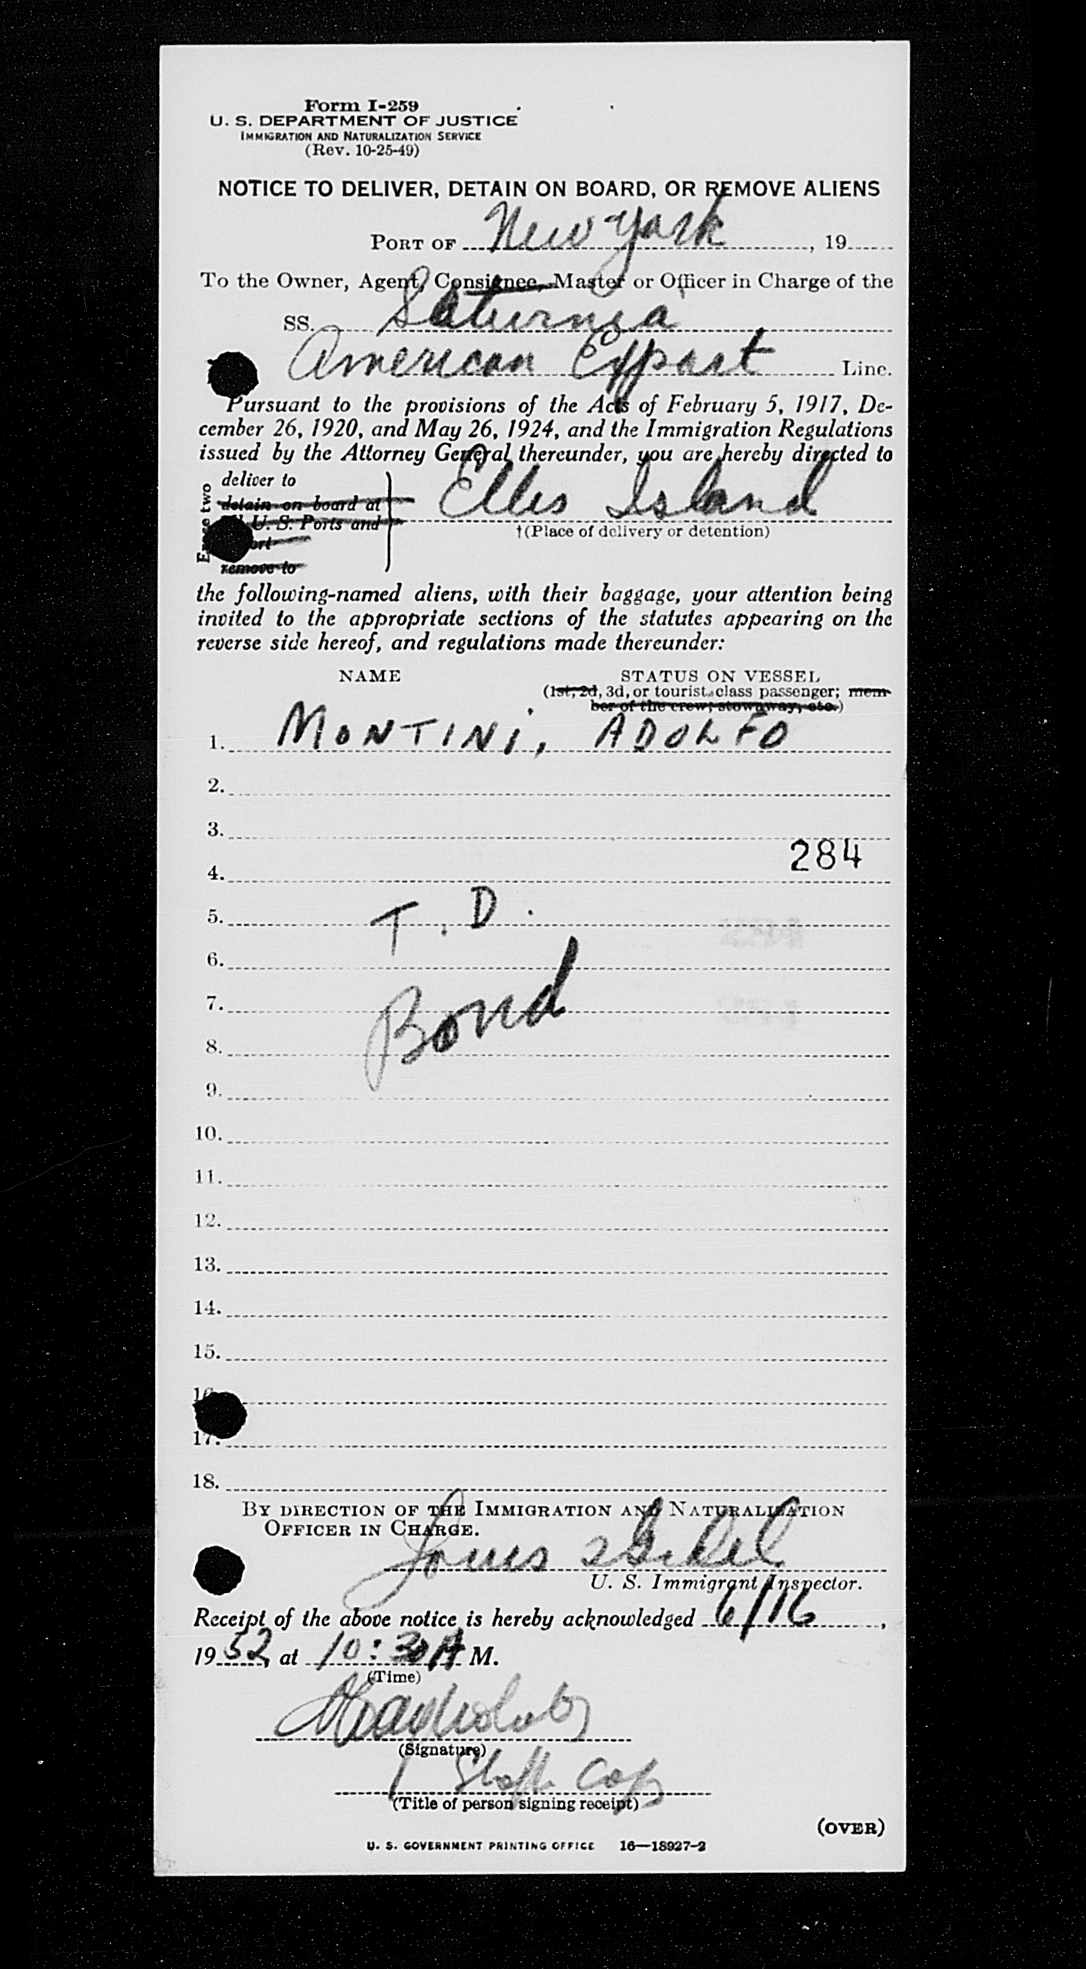 Form I-259
U. S. DEPARTMENT OF JUSTICE
IMMIGRATION AND NATURALIZATION SERVICE
(Rev. 10-25-49)
NOTICE TO DELIVER, DETAIN ON BOARD, OR REMOVE ALIENS
PORT OF New York, 19
To the Owner, Agent, Consignee, Master or Officer in Charge of the
SS. Saturnia
American Export Line.
Pursuant to the provisions of the Acts of February 5, 1917, De-
cember 26, 1920, and May 26, 1924, and the Immigration Regulations
issued by the Attorney General thereunder, you are hereby directed to
deliver to
detain on board at
U. S. Ports and
remove to
two
Ellis Island
†(Place of delivery or detention)
the following-named aliens, with their baggage, your attention being
invited to the appropriate sections of the statutes appearing on the
reverse side hereof, and regulations made thereunder:
NAME STATUS ON VESSEL
(1st, 2d, 3d, or tourist class passenger; mem-
ber of the crew; stowaway, etc.)
1. MONTINI, ADOLFO
2.
3.
284
4.
5. T. D.
6.
7. Bond
8.
9.
10.
11.
12.
13.
14.
15.
16
17.
18.
BY DIRECTION OF THE IMMIGRATION AND NATURALIZATION
OFFICER IN CHARGE.
Louis
U. S. Immigrant Inspector.
Receipt of the above notice is hereby acknowledged 6/16,
1952, at 10:30 A M.
(Time)
(Signature)
(Title of person signing receipt)
(OVER)
U. S. GOVERNMENT PRINTING OFFICE 16—18927-2